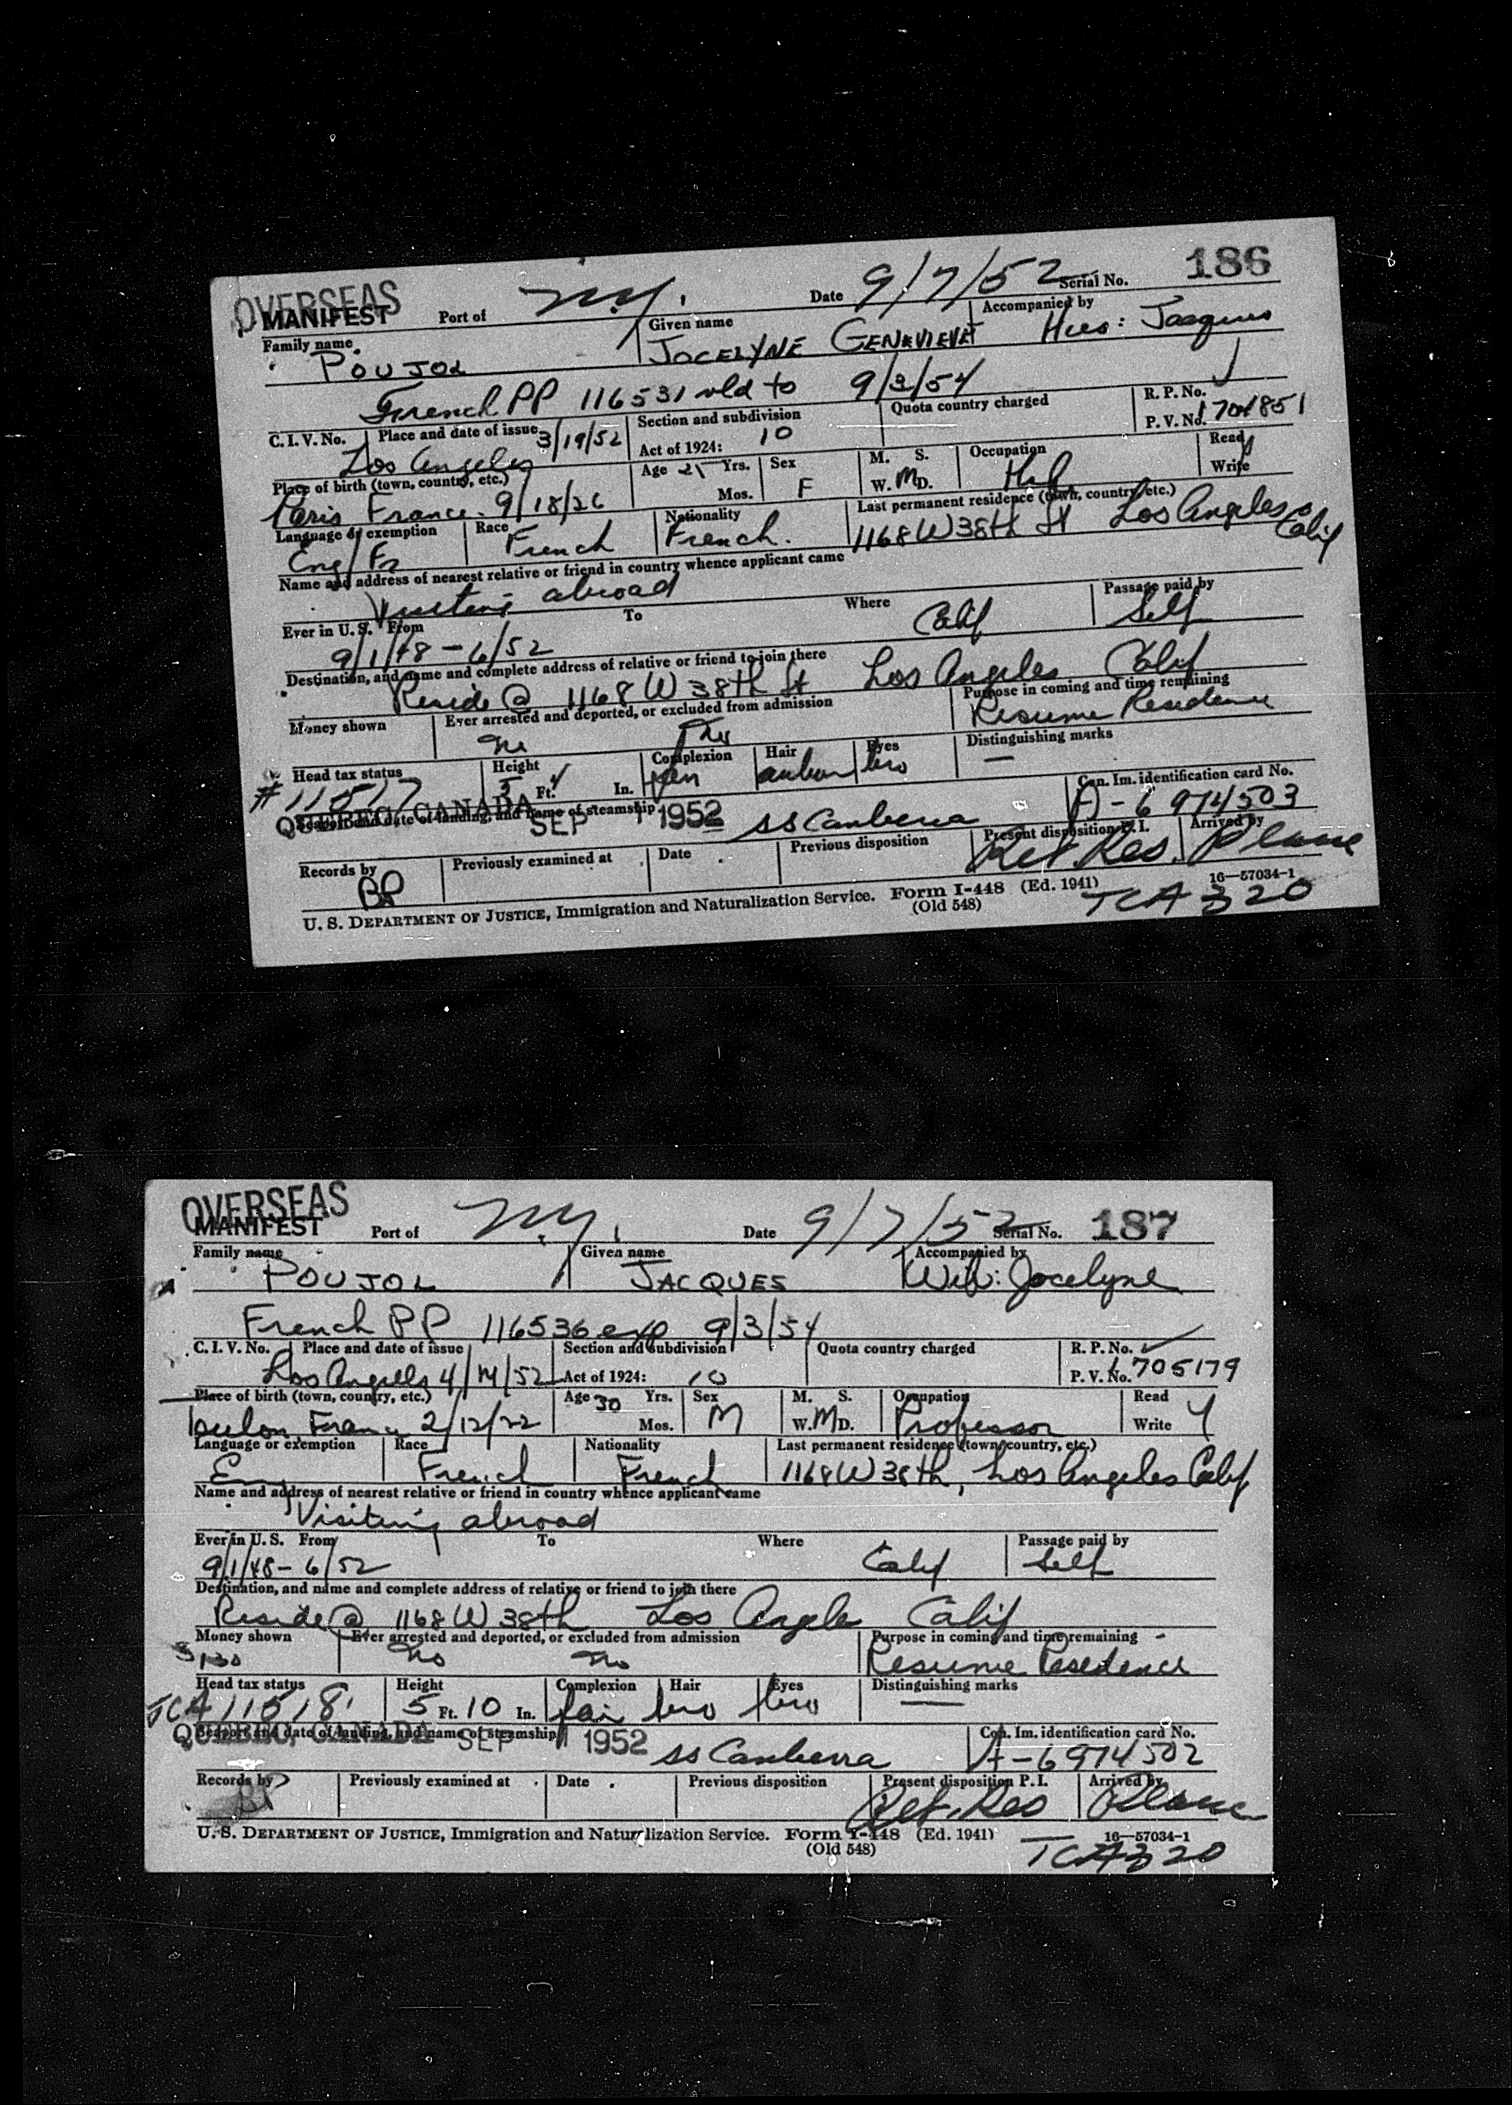 OVERSEAS
186
MANIFEST Port of N.Y. Date 9/7/52 Serial No.
Family name Given name Accompanied by
POUJOL JOCELYNE GENEVIEVE Hus: Jacques
French PP 116531 vld to 9/3/54
C. I. V. No. Place and date of issue 3/19/52 Section and subdivision Quota country charged R. P. No.
Los Angeles Act of 1924: 10 P. V. No. 1704851
Place of birth (town, country, etc.) Age 25 Yrs. Mos. Sex F M. S. W. M D. Occupation Read Write
Paris France 9/18/26
Language or exemption Race Nationality Last permanent residence (town, country, etc.)
Eng/Fr French French. 1168 W 38th St Los Angeles Calif
Name and address of nearest relative or friend in country whence applicant came
Visiting abroad
Ever in U. S. From To Where Passage paid by
9/1/48 - 6/52 Calif Self
Destination, and name and complete address of relative or friend to join there
Reside @ 1168 W 38th St Los Angeles Calif
Money shown Ever arrested and deported, or excluded from admission Purpose in coming and time remaining
No No Resume Residence
Head tax status Height Complexion Hair Eyes Distinguishing marks
# 11517 5 Ft. 4 In. auburn bro —
Seaport and date of landing, and name of steamship Can. Im. identification card No.
QUEBEC, CANADA SEP 1952 SS Canberra A-6 974503
Records by Previously examined at Date Previous disposition Present disposition P. I. Arrived by
BP Ret. Res. Plane
U. S. DEPARTMENT OF JUSTICE, Immigration and Naturalization Service. Form I-448 (Ed. 1941) 16—57034-1
(Old 548) TCA 320
OVERSEAS
MANIFEST Port of N.Y. Date 9/7/52 Serial No. 187
Family name Given name Accompanied by
POUJOL JACQUES Wife: Jocelyne
French PP 116536 exp 9/3/54
C. I. V. No. Place and date of issue Section and subdivision Quota country charged R. P. No.
Los Angeles 4/14/52 Act of 1924: 10 P. V. No. 1705179
Place of birth (town, country, etc.) Age 30 Yrs. Mos. Sex M M. S. W. M D. Occupation Read Write Y
Toulon, France 2/12/22 Professor
Language or exemption Race Nationality Last permanent residence (town, country, etc.)
Eng French French 1168 W 38th, Los Angeles Calif
Name and address of nearest relative or friend in country whence applicant came
Visiting abroad
Ever in U. S. From To Where Passage paid by
9/1/48 - 6/52 Calif Self
Destination, and name and complete address of relative or friend to join there
Reside @ 1168 W 38th Los Angeles Calif
Money shown Ever arrested and deported, or excluded from admission Purpose in coming and time remaining
No No Resume Residence
Head tax status Height Complexion Hair Eyes Distinguishing marks
TCA 11518 5 Ft. 10 In. fair bro bro —
Seaport and date of landing, and name of steamship Can. Im. identification card No.
QUEBEC, CANADA SEP 1952 SS Canberra A-6 974502
Records by Previously examined at Date Previous disposition Present disposition P. I. Arrived by
BP Ret. Res Plane
U. S. DEPARTMENT OF JUSTICE, Immigration and Naturalization Service. Form I-448 (Ed. 1941) 16—57034-1
(Old 548) TCA 320